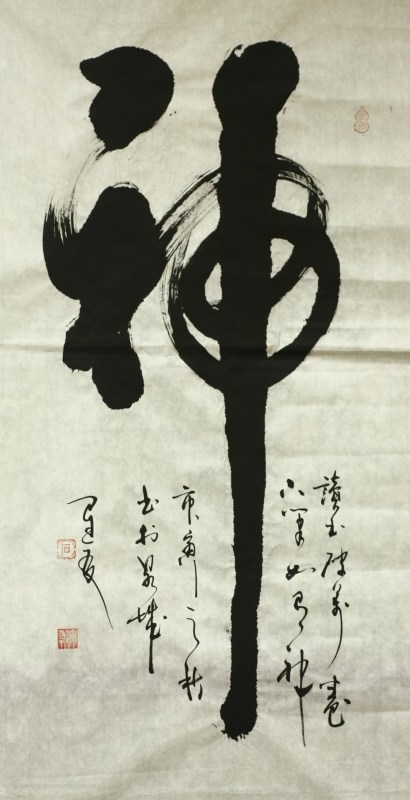 神
讀書破萬卷
下筆如有神
之秋
書於泉城